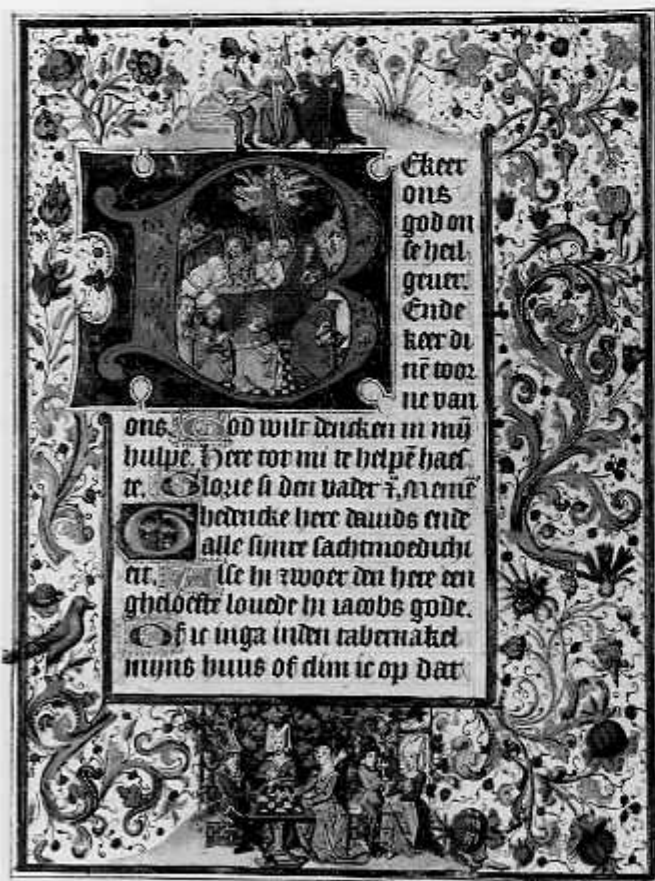 BEkeer
ons
god on
se heil
geuer.
Ende
keer di
nē toor
ne van
ons. God wilt dencken in mȳ
hulpe. Here tot mi te helpē haes
te. Glorie si den vader
Ghedencke here dauids ende
alle sijnre sachtmoedichi
eit. Alse hi zwoer den here een
gheloefte louede hi iacobs gode.
Of ic inga inden tabernakel
mijns huus of clim ic op dat